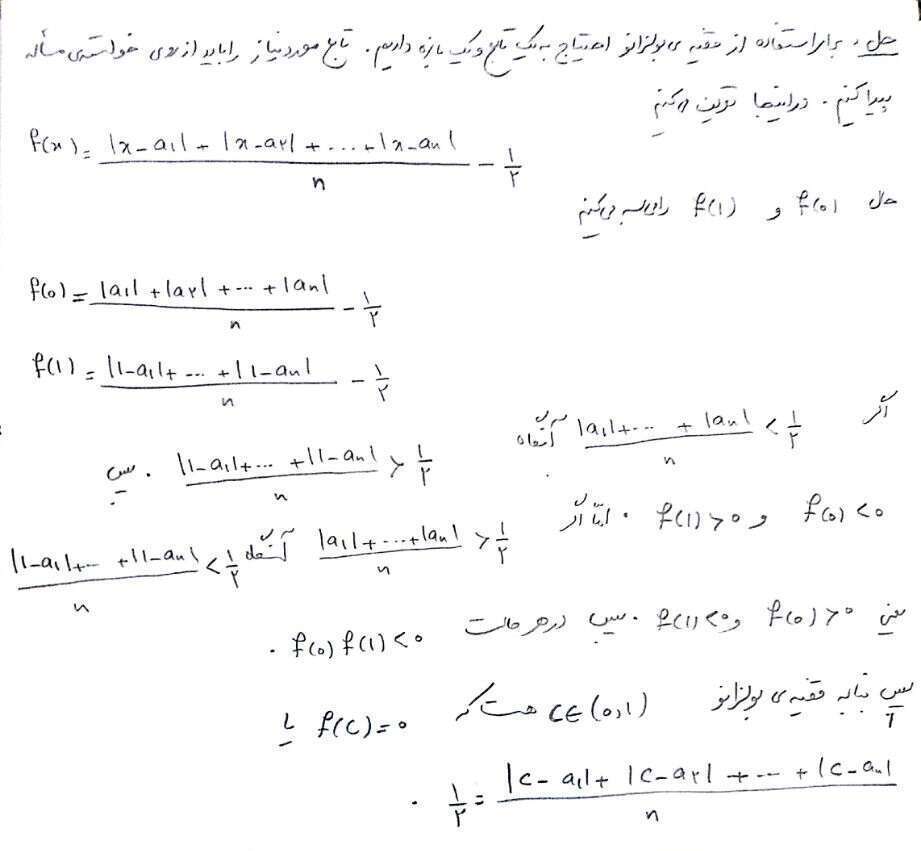 حل، برای استفاده از قضیه ی بولزانو احتیاج به یک تابع و یک بازه داریم. تابع مورد نیاز را باید از روی خواسته ی مسأله
پیدا کنیم. در اینجا تعریف می کنیم
f(x) = |x-a۱| + |x-a۲| + ... + |x-an| / n - ۱/۲
حال f(0) و f(1) را محاسبه می کنیم
f(0) = |a۱| + |a۲| + ... + |an| / n - ۱/۲
f(1) = |1-a۱| + ... + |1-an| / n - ۱/۲
اگر |a۱| + ... + |an| / n < ۱/۲ آنگاه
|1-a۱| + ... + |1-an| / n > ۱/۲ . پس
f(0) < 0 و f(1) > 0 . امّا اگر
|a۱| + ... + |an| / n > ۱/۲ آنگاه |1-a۱| + ... + |1-an| / n < ۱/۲
یعنی f(0) > 0 و f(1) < 0 . پس در هر حالت f(0) f(1) < 0 .
پس بنا به قضیه ی بولزانو c ∈ (0,1) هست که f(c) = 0 یا
۱/۲ = |c-a۱| + |c-a۲| + ... + |c-an| / n .